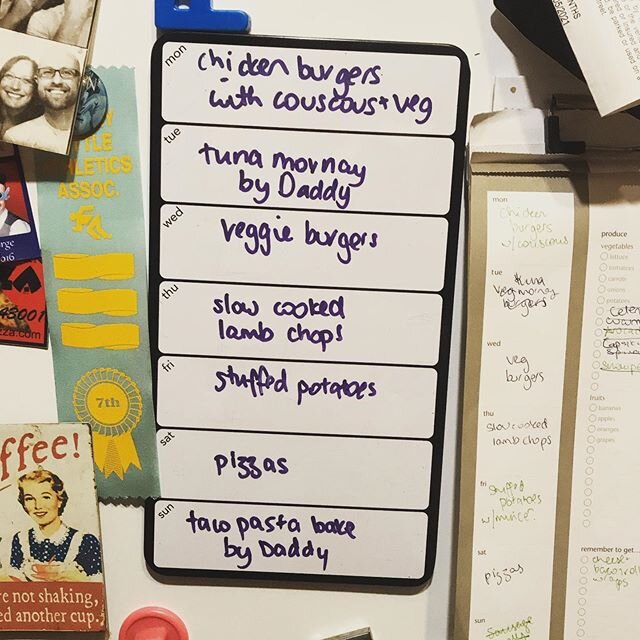 mon
chicken burgers
with couscous + veg
tue
tuna mornay
by Daddy
wed
veggie burgers
thu
slow cooked
lamb chops
fri
stuffed potatoes
sat
pizzas
sun
taco pasta bake
by Daddy
ASSOC.
7th
ffee!
re not shaking,
ed another cup.
mon
chicken
burgers
w/ couscous
tue
tuna
veg mornay
burgers
wed
veg
burgers
thu
slow cooked
lamb chops
fri
stuffed
potatoes
w/ mince
sat
pizzas
sun
sausage
produce
vegetables
lettuce
tomatoes
carrots
onions
potatoes
fruits
bananas
apples
oranges
grapes
remember to get...
cheese